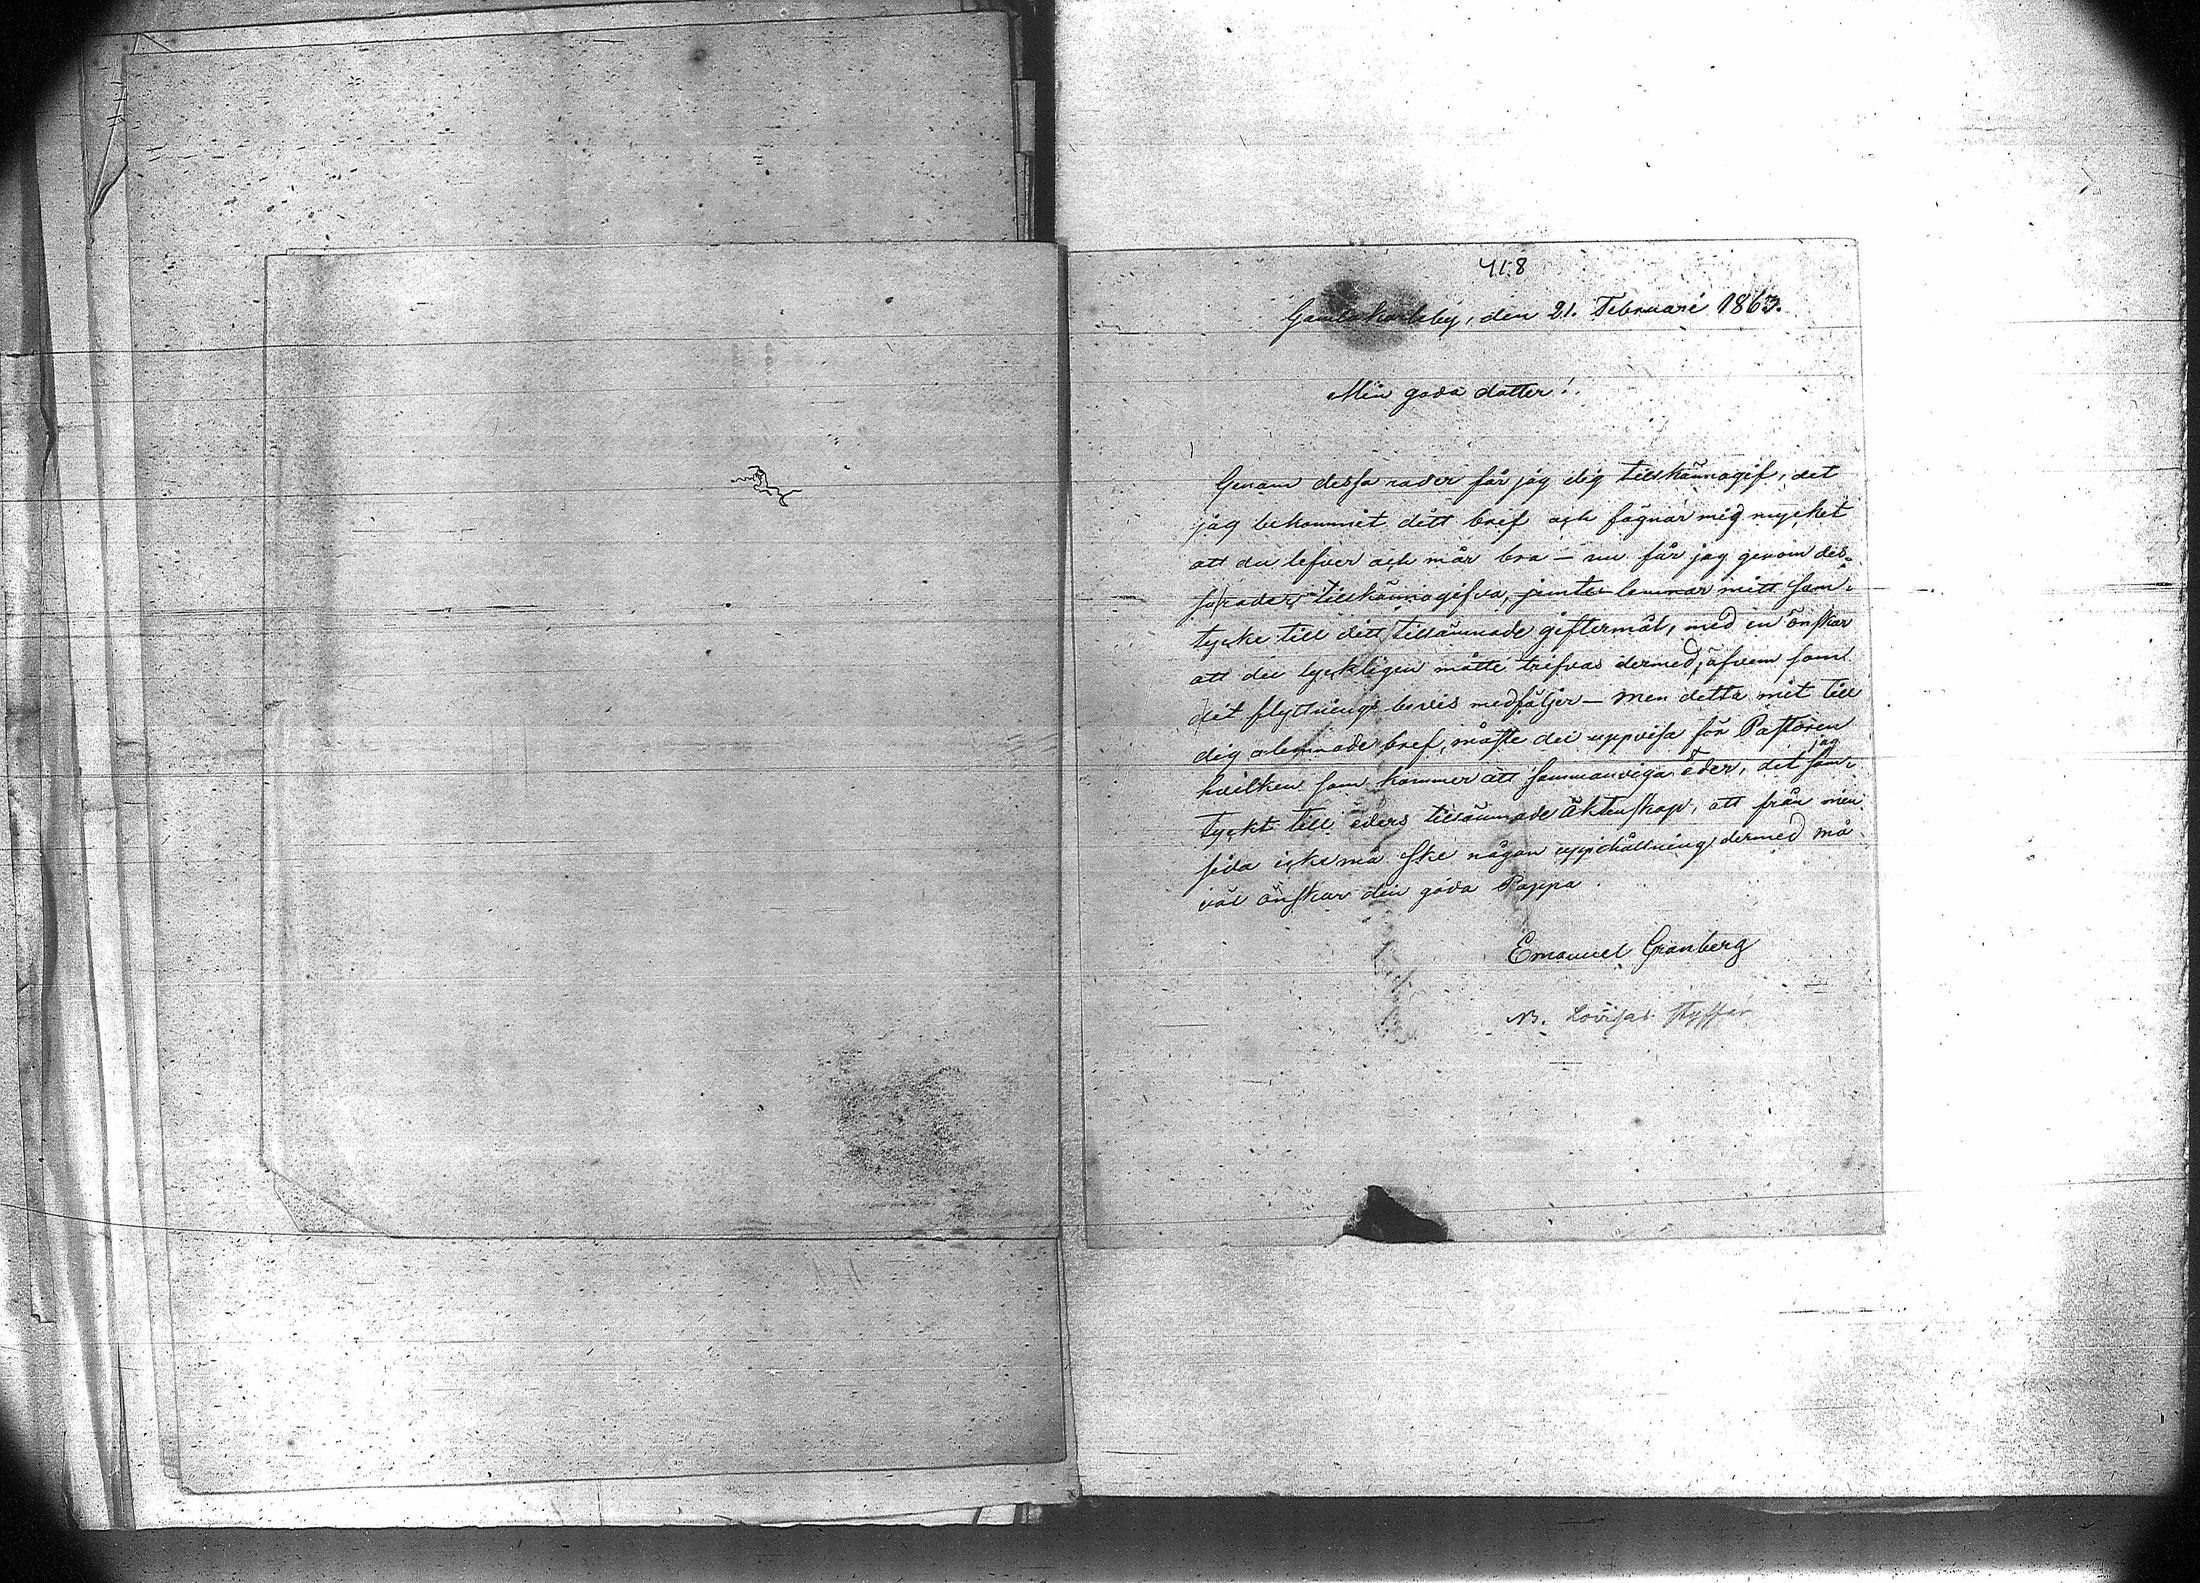 418
Gamlakarleby, den 21. Februari 1863.
Min goda dotter!
Genom dessa rader får jag dig tillkännagif, det
jag bekommit ditt bref och fägnar mig mycket
att du lefver och mår bra — nu får jag genom des-
sa rader tillkännagifva, jemte lemnar mitt sam-
tycke till ditt tillämnade giftermål, med en önskar
att du lyckligen måtte trifvas dermed, äfvem som
dit flyttnings bevis medföljer — Men detta mit till
dig lemnade bref, måste du uppvisa för Pastoren
hvilken som kommer att sammanviga eder, det jag sam-
tyckt till eders tillämnade äktenskap, att från min
sida icke må ske någon uppehållning dermed må
väl önskar din goda Pappa.
Emanuel Granberg
N. Lovisas